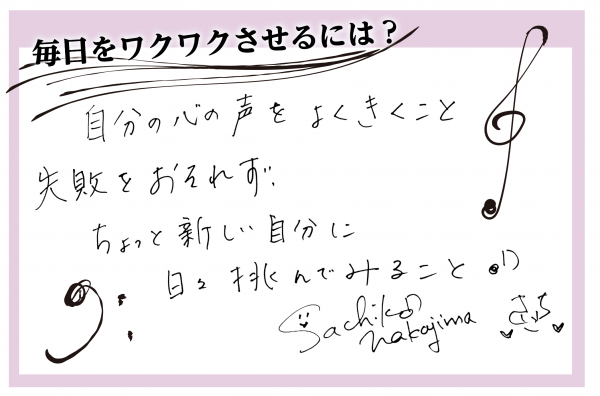 毎日をワクワクさせるには？
自分の心の声をよくきくこと
失敗をおそれず、
ちょっと新しい自分に
日々挑んでみること
Sachiko
nakajima
さち